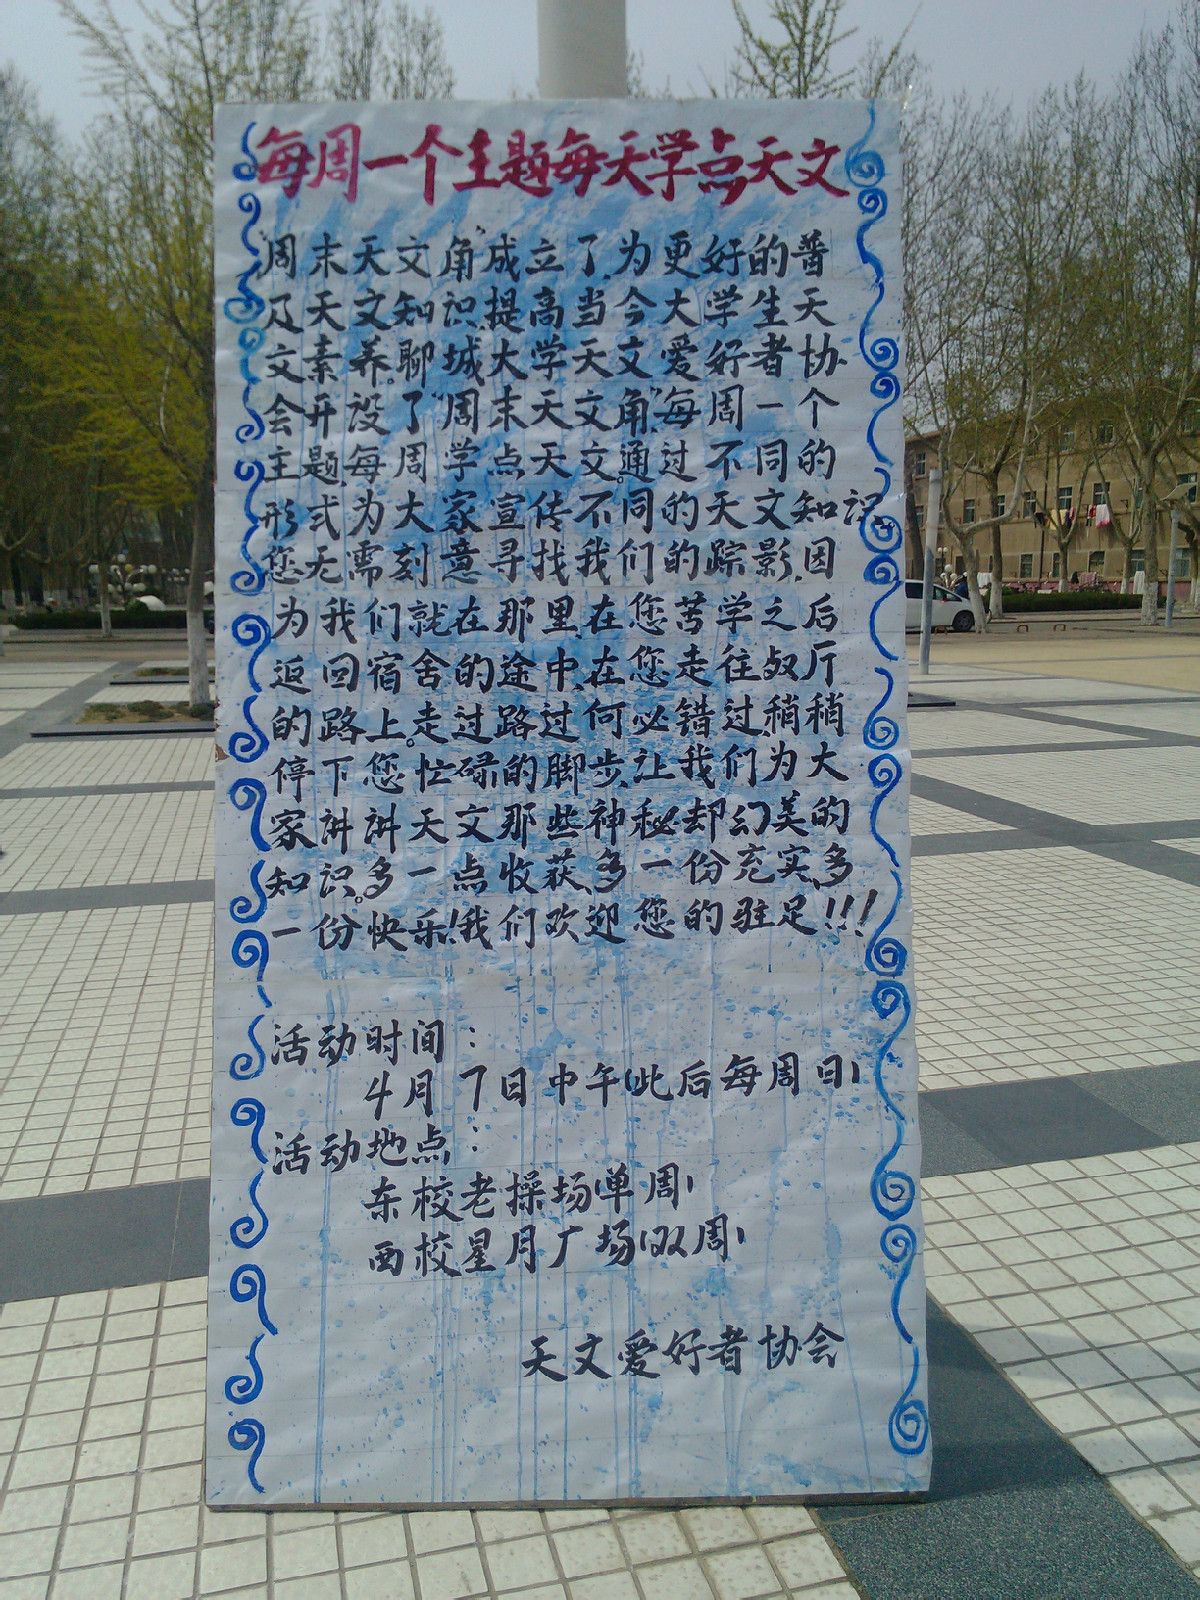 每周一个主题每天学点天文
"周末天文角"成立了,为更好的普
及天文知识,提高当今大学生天
文素养。聊城大学天文爱好者协
会开设了"周末天文角",每周一个
主题,每周学点天文。通过不同的
形式为大家宣传不同的天文知识。
您无需刻意寻找我们的踪影,因
为我们就在那里,在您苦学之后
返回宿舍的途中,在您走往餐厅
的路上。走过路过何必错过,稍稍
停下您忙碌的脚步,让我们为大
家讲讲天文那些神秘却幻美的
知识。多一点收获,多一份充实,多
一份快乐!我们欢迎您的驻足!!!
活动时间:
4月7日中午(此后每周日)
活动地点:
东校老操场(单周)
西校星月广场(双周)
天文爱好者协会